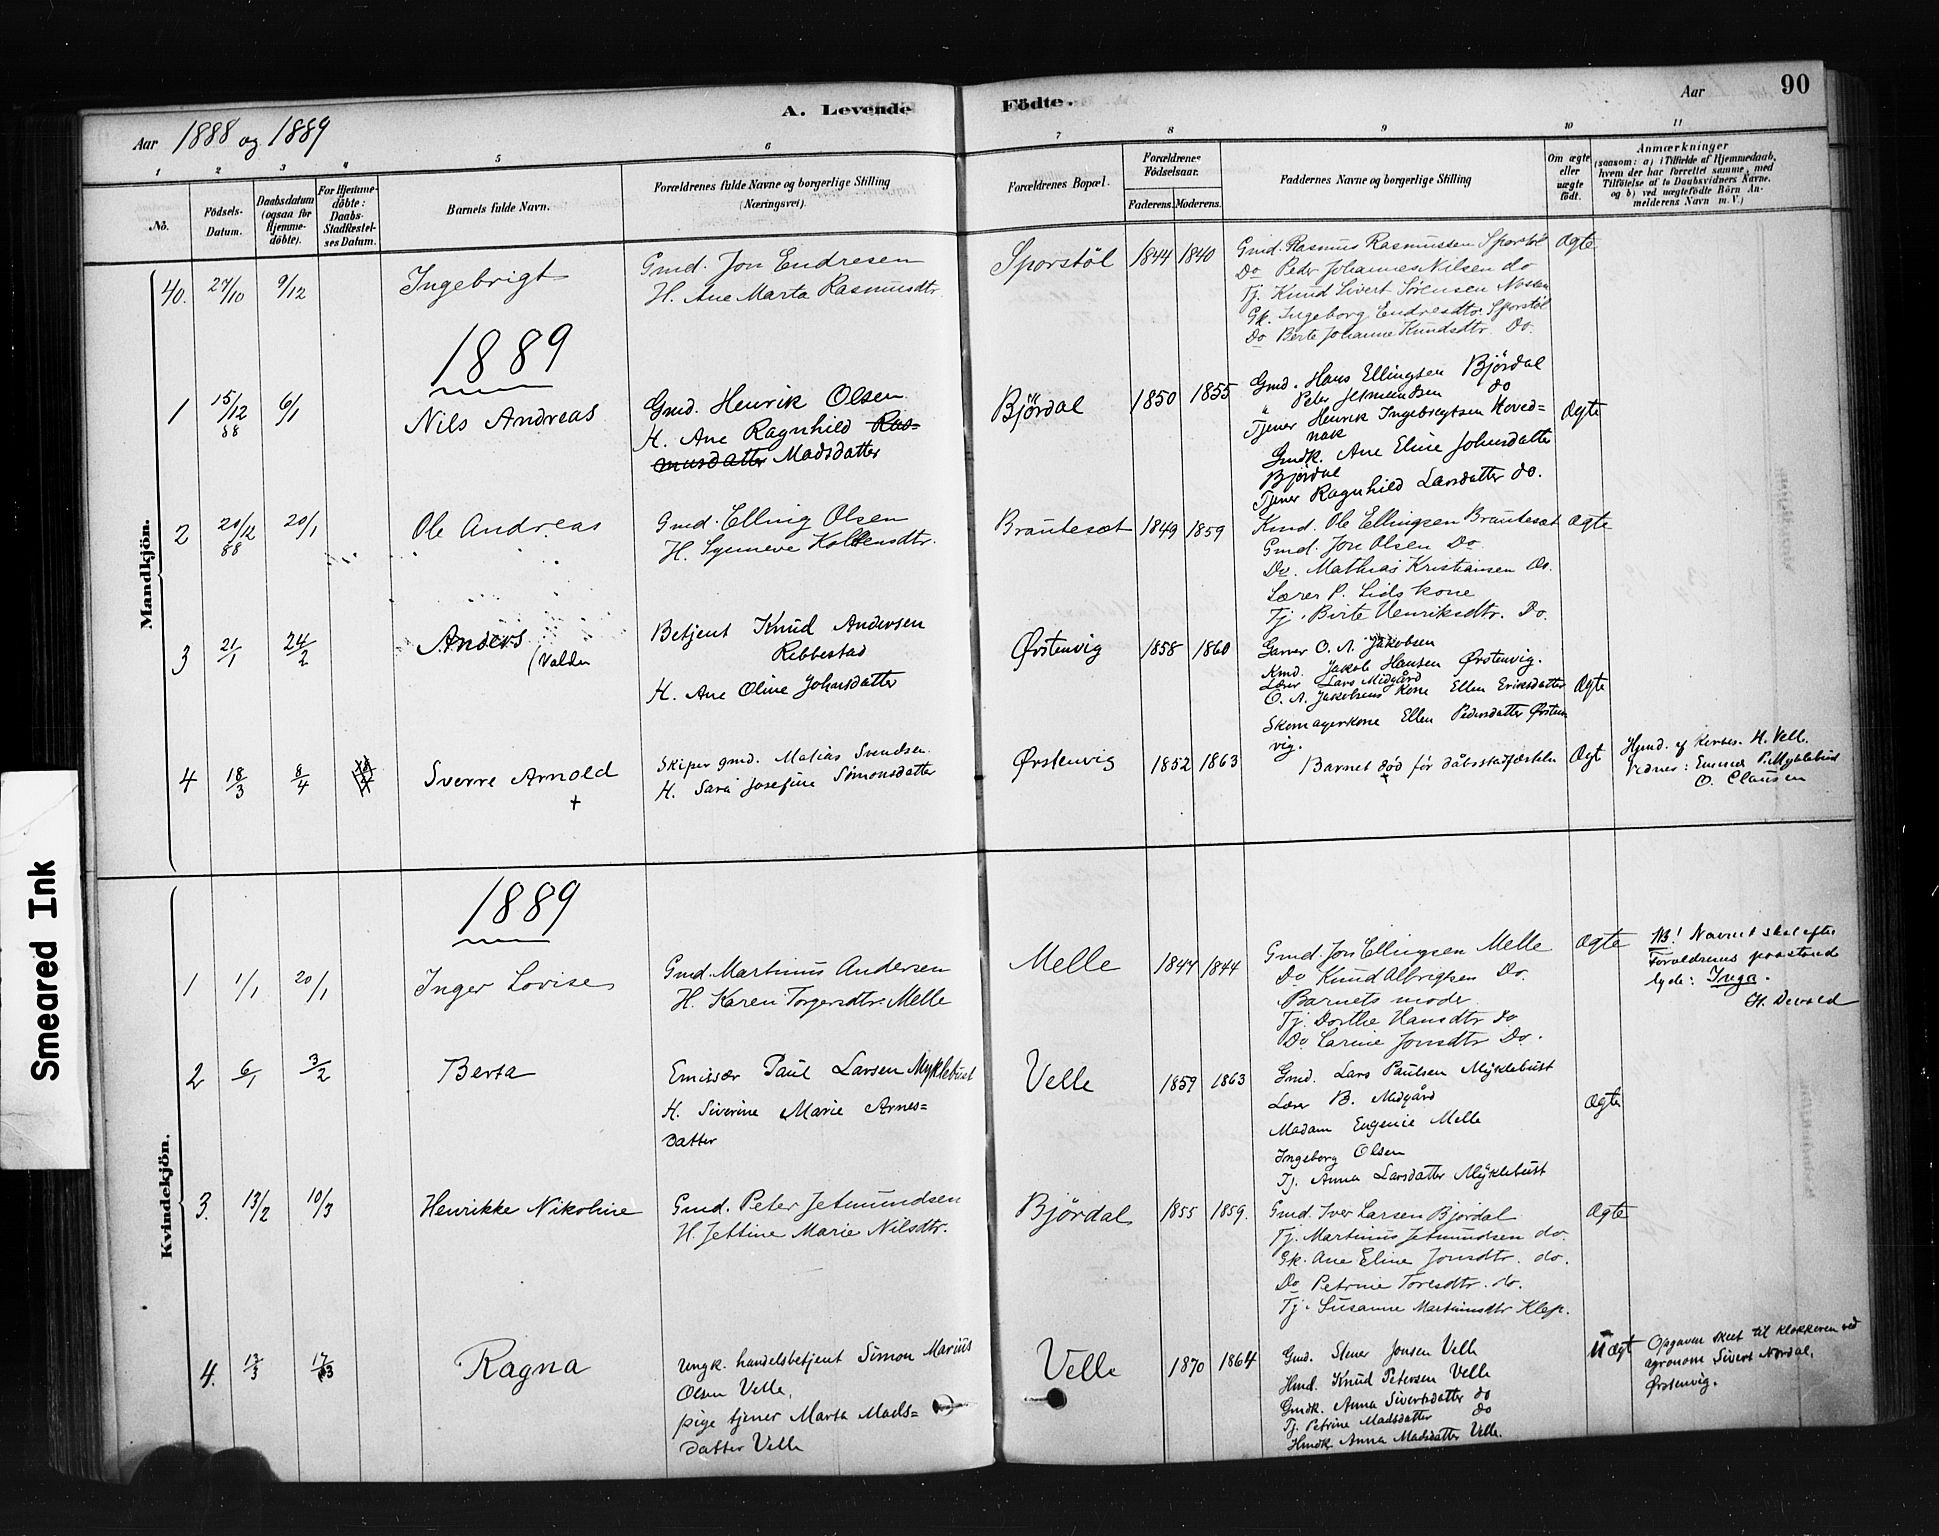 A. Levende Födte.
Aar 1888 og 1889
Aar 90
1 2 3 4 5 6 7 8 9 10 11
No.
Födsels-Datum.
Daabsdatum (ogsaa for Hjemme-döbte).
For Hjemme-döbte: Daabs-Stadfæstel-ses Datum.
Barnets fulde Navn.
Forældrenes fulde Navne og borgerlige Stilling (Næringsvei).
Forældrenes Bopæl.
Forældrenes Födselsaar.
Faderens. Moderens.
Faddernes Navne og borgerlige Stilling
Om ægte eller uægte födt.
Anmærkninger
(saasom: a) i Tilfælde af Hjemmedaab, hvem der har forrettet samme, med Tilföielse af to Daabsvidners Navne, og b) ved uægtefödte Börn An-melderens Navn m. V.)
Mandkjön.
40. 27/10 9/12 Ingebrigt
Gmd. Jon Endresen
H. Ane Marta Rasmusdtr.
Sporstöl 1844 1840
Gmd. Rasmus Rasmussen Sporstöl Ægte
Do Peder Johannes Nilsen do
Tj. Knud Sivert Sørensen
Gk. Ingeborg Endresdtr. Sporstöl
Do Berte Johanne Knudsdtr. Do.
1889
1 15/12 88 6/1 Nils Andreas
Gmd. Henrik Olsen
H. Ane Ragnhild Ras=
musdatter Madsdatter
Bjørdal 1850 1855
Gmd. Hans Ellingsen Björdal
" Peter Jetmundsen do
Tjener Henrik Ingebregtsen Hoved= Ægte
nak
Gmdk. Ane Eline Johnsdatter
Björdal
Tjener Ragnhild Larsdatter do.
2 20/12 88 20/1 Ole Andreas
Gmd. Elling Olsen
H. Synneve Kolbensdtr.
Brautesæt 1849 1859
Kmd. Ole Ellingsen Brautesæt Ægte
Gmd. Jon Olsen Do
Do. Mathias Kristiansen Do.
Lærer P. Lids kone
Tj. Birte Henriksdtr. Do.
3 21/1 24/2 Anders
(Valder
Betjent Knud Andersen
Ribbestad
H. Ane Oline Johnsdatter
Ørstenvig 1858 1860
Garver O. A. Jakobsen
Kmd. Jakob Hansen Ørstenvig.
Lærer Lars Midgård
O. A. Jakobsens Kone Ellen Eriksdatter Ægte
Skomagerkone Ellen Pedersdatter Ørsten
vig.
4 18/3 8/4 Sverre Arnold
+
Skiper gmd. Matias Svendsen
H. Sara Josefine Simonsdatter
Ørstenvig 1852 1863
Barnet död før dåbsstadfæstelsen Ægt
+
Hjmd. af H. Velle.
Vidner: P. Myklebust
O. Clausen
Kvindekjön.
1889
1 1/1 20/1 Inger Lovise
Gmd. Martinus Andersen
H. Karen Torgersdtr. Melle
Melle 1844 1844
Gmd. Jon Ellingsen Melle Ægte
Do Knud Albrigtsen Do.
Barnets moder
Tj. Dorthe Hansdtr do
Do Larine Jonsdtr Do.
NB! Navnet skal efter
Foreldrenes paastand
lyde: Inga.
H. Devold
2 6/1 3/2 Berta
Emissær Paul Larsen Myklebust
H. Siverine Marie Arnes=
datter
Velle 1859 1863
Gmd. Lars Paulsen Myklebust
Lærer B. Midgård Ægte
Madam Eugenie Melle
Ingeborg Olsen
Tj. Anna Larsdatter Myklebust
3. 13/2 10/3 Henrikke Nikoline
Gmd. Peter Jetmundsen
H. Jettine Marie Nilsdtr.
Bjørdal 1855 1859.
Gmd. Iver Larsen Bjørdal Ægte
Tj. Martinus Jetmundsen do.
Gk. Ane Eline Jonsdtr. do.
Do Petrine Toresdtr. do.
Tj. Susanne Martinusdtr Klep.
4. 13/3 17/3 Ragna
Ungk. handelsbetjent Simon Marius
Olsen Velle,
pige tjener Marta Mads=
datter Velle
Velle 1870 1864
Gmd. Stener Jonsen Velle Uægt
Hmd. Knud Petersen Velle
Gmdk. Anna Sivertsdatter do
Tj. Petrine Madsdatter do
Hmdk Anna Madsdatter Velle.
Opgaven skeet til klokkeren ved
agronom Sivert Nordal,
Ørstenvig.
Smeared Ink